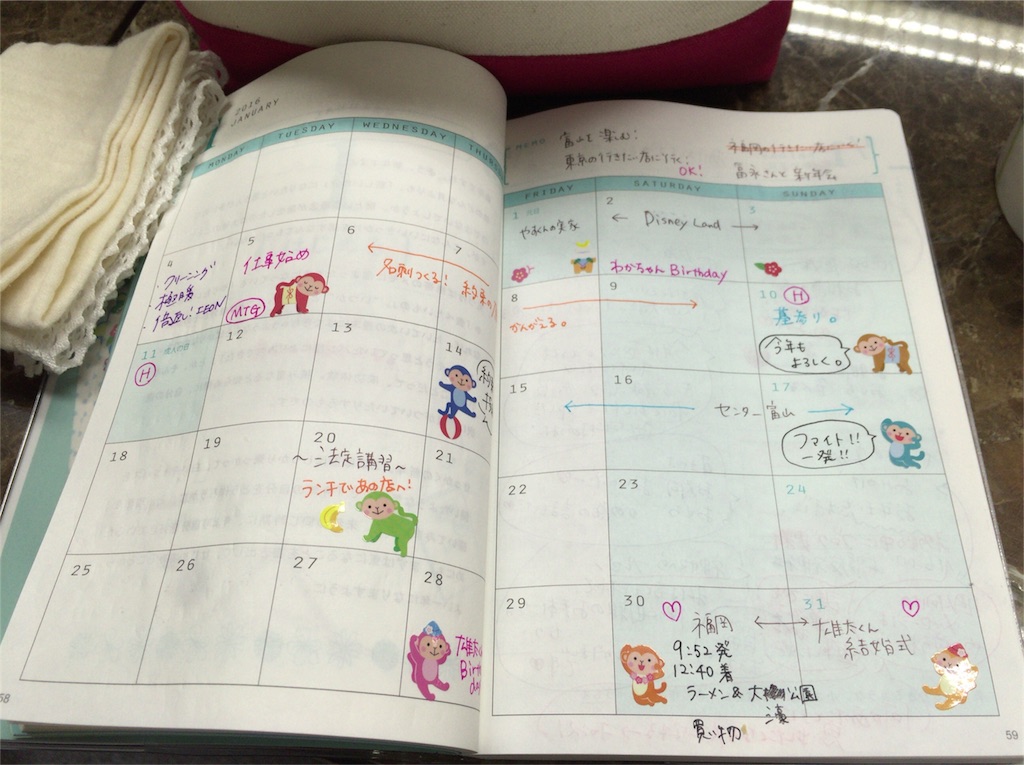 2016
JANUARY
MONDAY
TUESDAY
WEDNESDAY
THURS
4
クリーニング
・極暖
5
仕事始め
MTG
6
名刺つくる!
7
約束の
11 成人の日
H
12
13
14
18
19
20
～法定講習～
ランチであの店へ!
21
25
26
27
28
雄太
Birth
day
58
MEMO
富山を楽しむ!
東京の行きたい店に行く!
OK!
福岡の行きたい店にいく!
富永さんと新年会。
FRIDAY
SATURDAY
SUNDAY
1 元日
2
← Disney Land →
わかちゃん Birthday
3
8
かんがえる。
9
10 H
墓参り。
今年も
よろしく。
15
16
センター富山
17
ファイト!!
一発!!
22
23
24
29
30
福岡
9:52発
12:40着
ラーメン & 大濠公園
買い物
31
雄太くん
結婚式
59